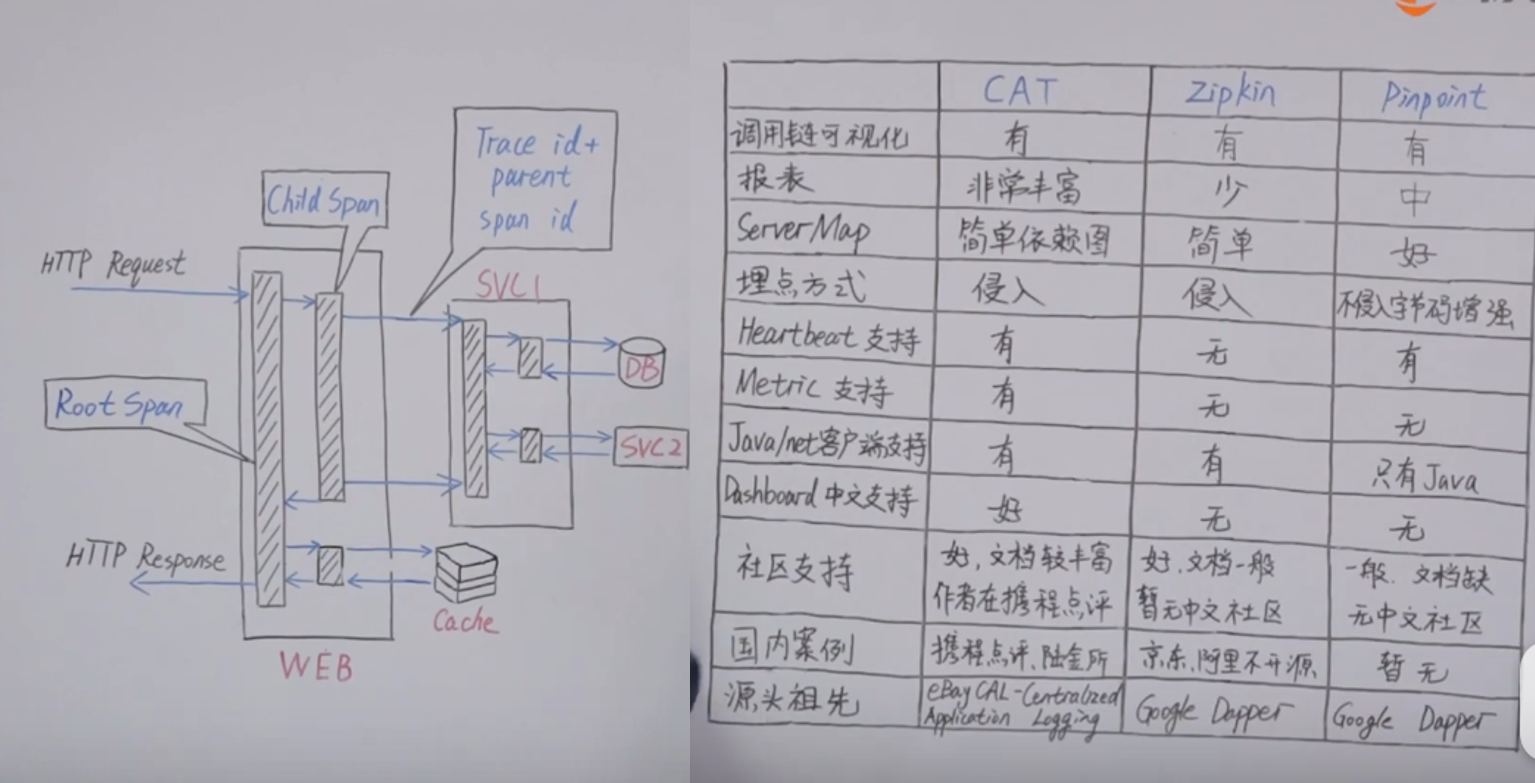 Trace id+
parent
span id
Child Span
HTTP Request
SVC1
DB
Root Span
SVC2
HTTP Response
Cache
WEB
CAT Zipkin Pinpoint
调用链可视化 有 有 有
报表 非常丰富 少 中
ServerMap 简单依赖图 简单 好
埋点方式 侵入 侵入 不侵入字节码增强
Heartbeat 支持 有 无 有
Metric 支持 有 无 无
Java/net客户端支持 有 有 只有Java
Dashboard 中文支持 好 无 无
社区支持 好,文档较丰富 好.文档一般 一般.文档缺
作者在携程点评 暂无中文社区 无中文社区
国内案例 携程点评、陆金所 京东、阿里不开源 暂无
源头祖先 eBay CAL-Centralized Google Dapper Google Dapper
Application Logging